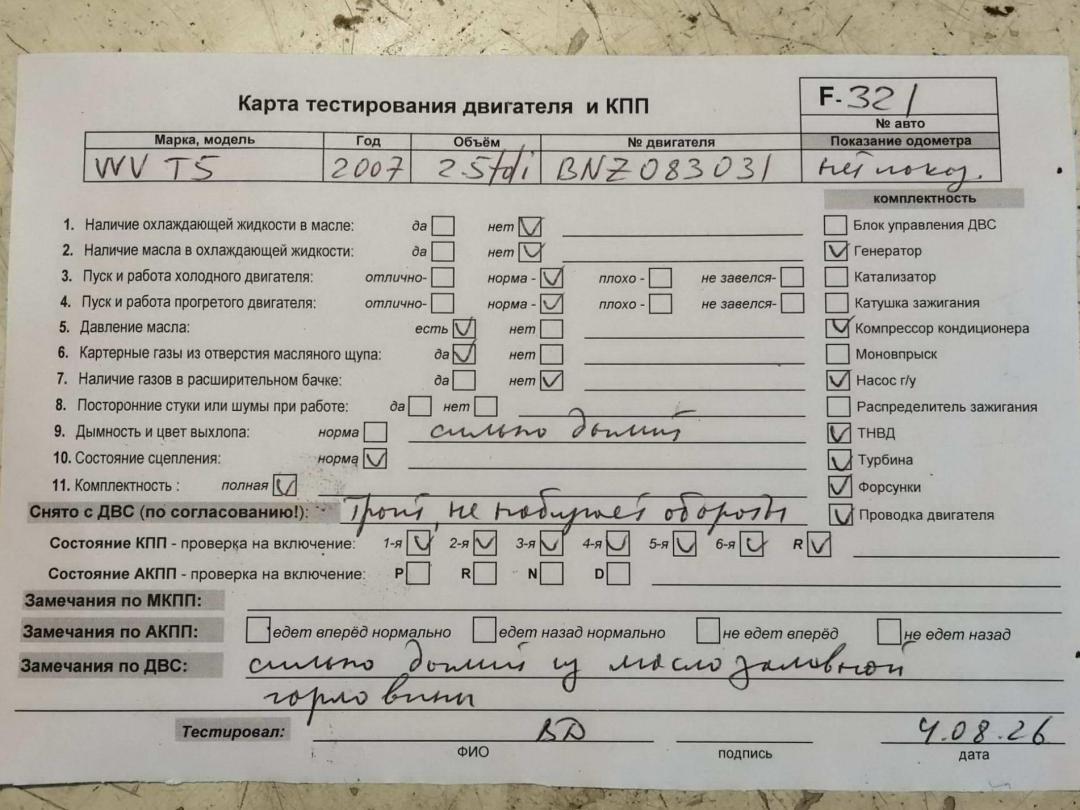 Карта тестирования двигателя и КПП
F-321
№ авто
Марка, модель Год Объём № двигателя Показание одометра
WV T5 2007 2.5 tdi BNZ083031 нет показ.
комплектность
1. Наличие охлаждающей жидкости в масле: да нет Блок управления ДВС
2. Наличие масла в охлаждающей жидкости: да нет Генератор
3. Пуск и работа холодного двигателя: отлично- норма - плохо - не завелся- Катализатор
4. Пуск и работа прогретого двигателя: отлично- норма - плохо - не завелся- Катушка зажигания
5. Давление масла: есть нет Компрессор кондиционера
6. Картерные газы из отверстия масляного щупа: да нет Моновпрыск
7. Наличие газов в расширительном бачке: да нет Насос г/у
8. Посторонние стуки или шумы при работе: да нет Распределитель зажигания
9. Дымность и цвет выхлопа: норма сильно дымит ТНВД
10. Состояние сцепления: норма Турбина
11. Комплектность : полная Форсунки
Снято с ДВС (по согласованию!): Троит, не набирает обороты Проводка двигателя
Состояние КПП - проверка на включение: 1-я 2-я 3-я 4-я 5-я 6-я R
Состояние АКПП - проверка на включение: P R N D
Замечания по МКПП:
Замечания по АКПП: едет вперёд нормально едет назад нормально не едет вперёд не едет назад
Замечания по ДВС: сильно дымит из масло заливной
горловины
Тестировал: ВД 4.08.26
ФИО подпись дата